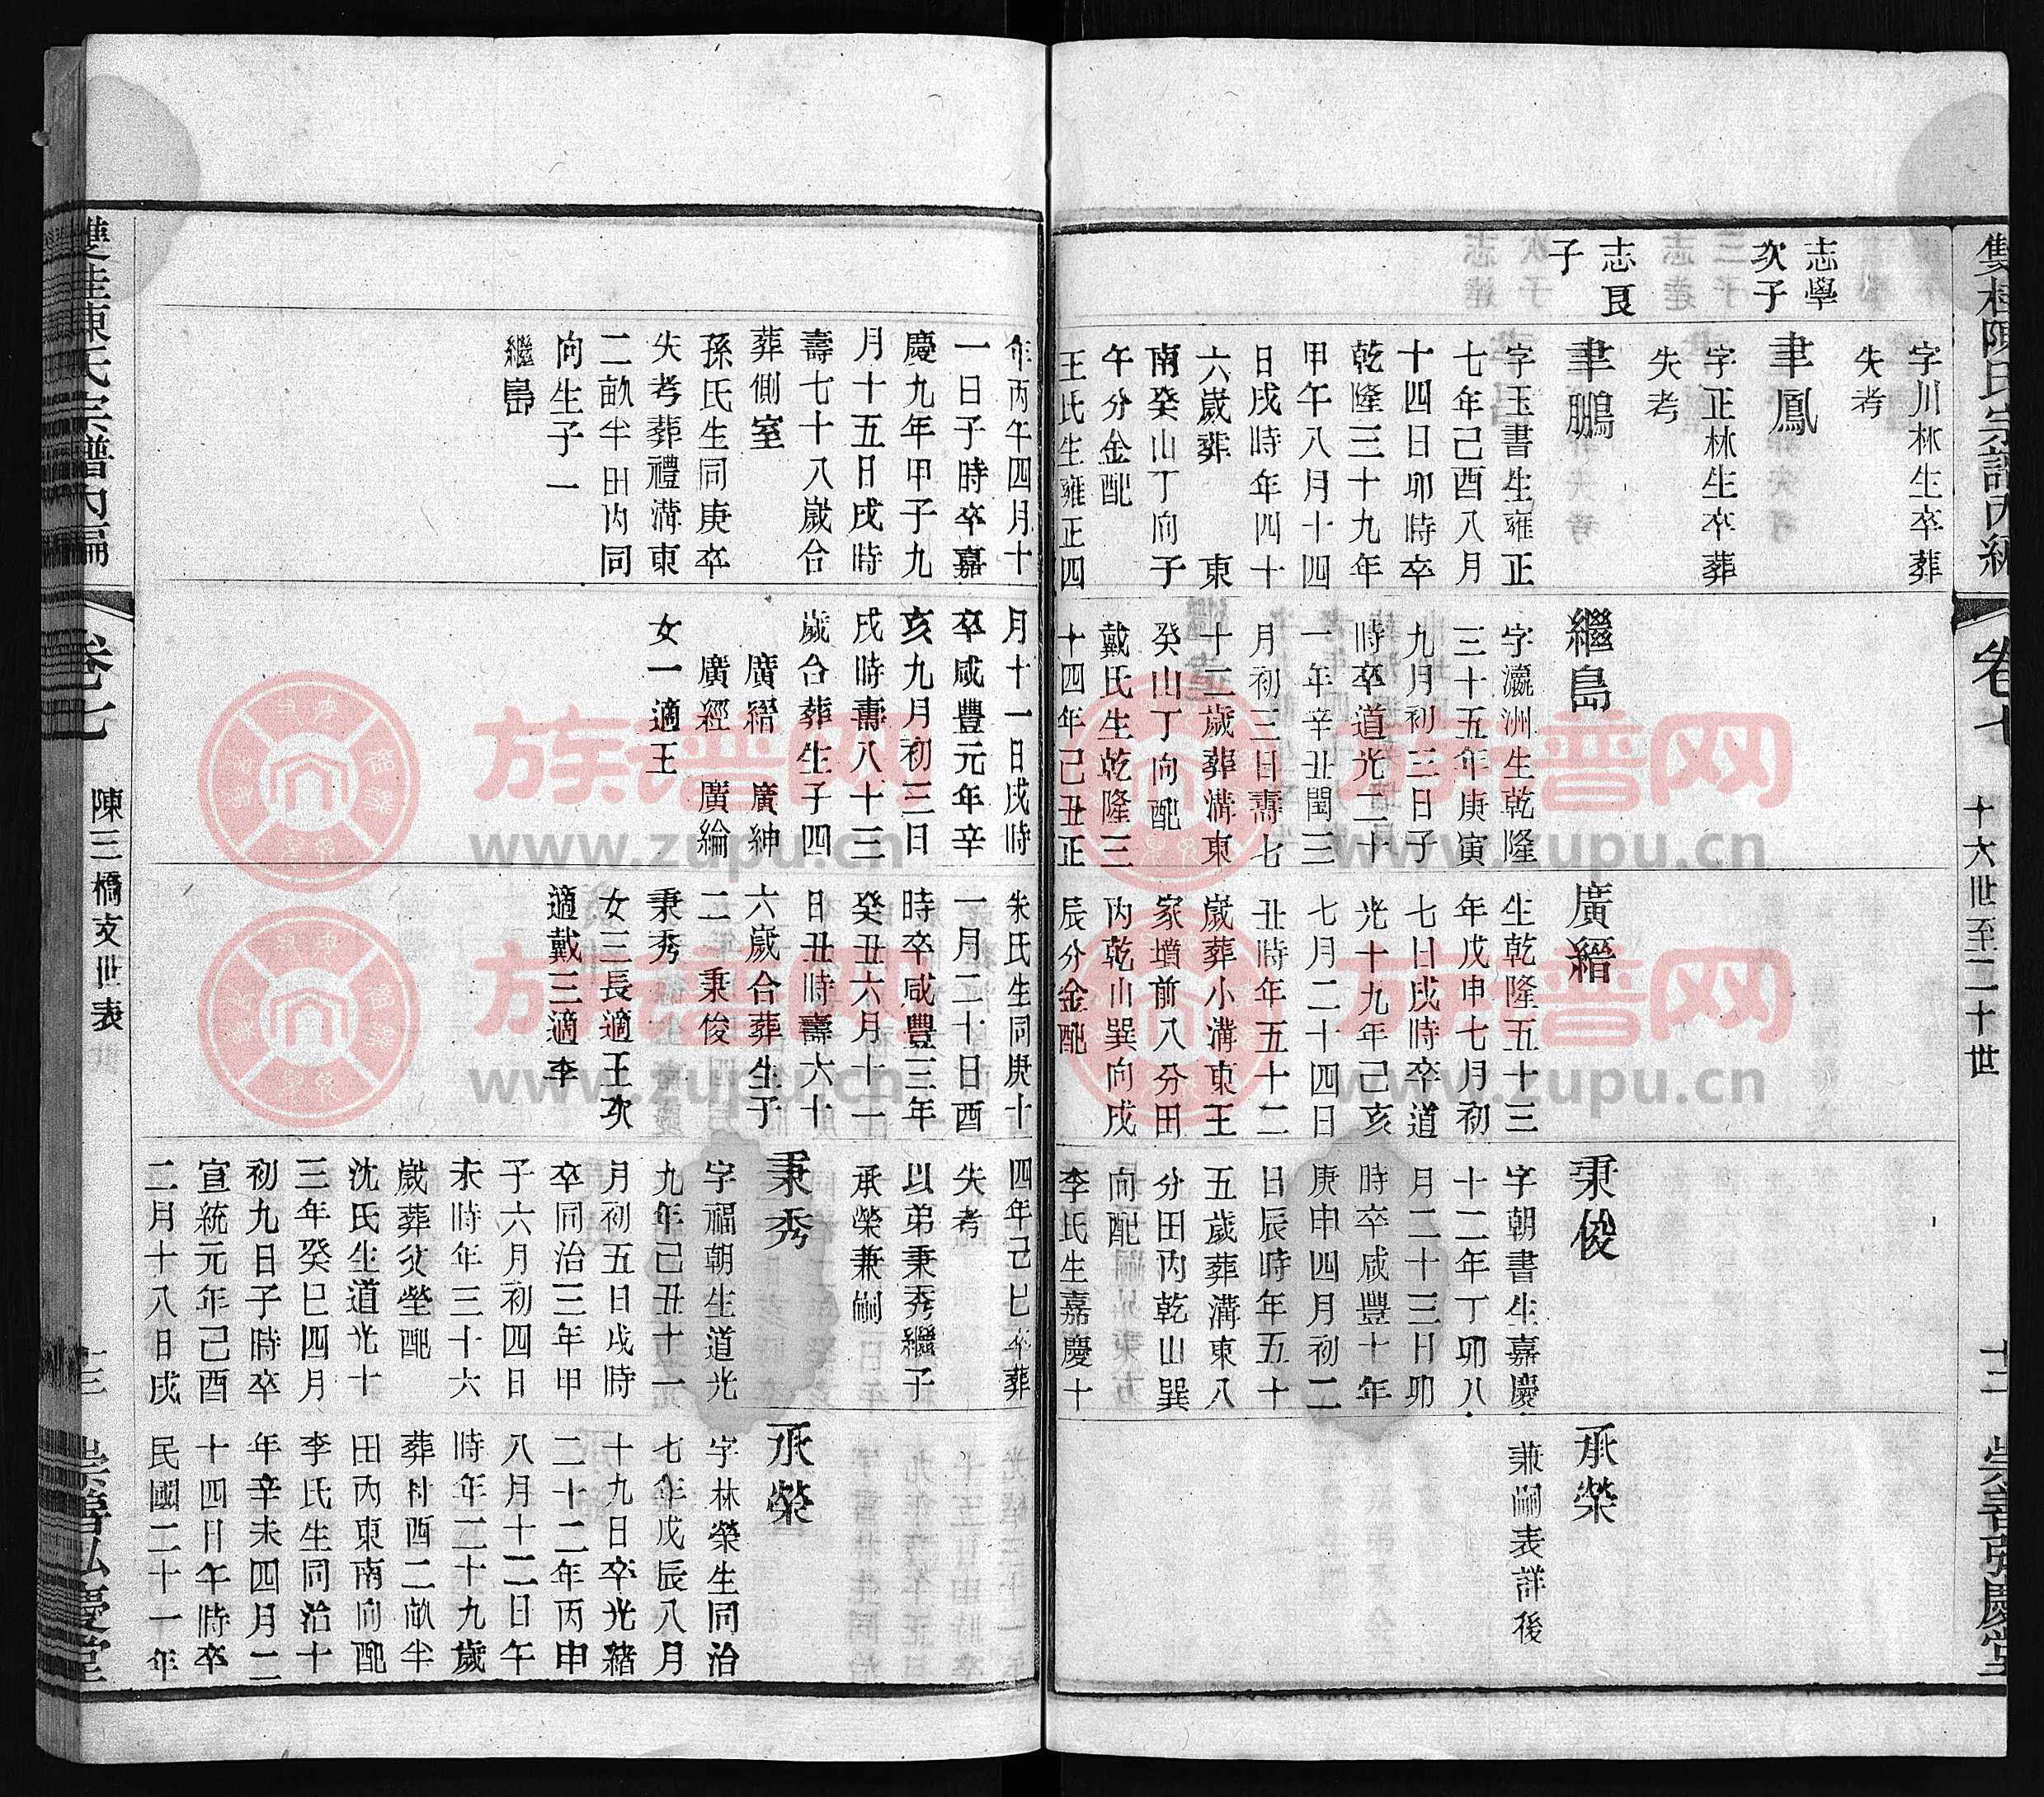 雙桂陳氏宗譜內編
卷七
十六世至二十世
十二
崇善弘慶堂
志學
次子
志良
子
字川林生卒葬
失考
聿鳳
字正林生卒葬
失考
聿鵬
字玉書生雍正
七年己酉八月
十四日卯時卒
乾隆三十九年
甲午八月十四
日戌時年四十
六歲葬 東
南癸山丁向子
午分金配
王氏生雍正四
繼島
字瀛洲生乾隆
三十五年庚寅
九月初三日子
時卒道光二十
一年辛丑閏三
月初三日壽七
十二歲葬溝東
癸山丁向配
戴氏生乾隆三
十四年己丑正
廣縉
生乾隆五十三
年戊申七月初
七日戌時卒道
光十九年己亥
七月二十四日
丑時年五十二
歲葬小溝東王
家墳前八分田
內乾山巽向戌
辰分金配
秉俊
字朝書生嘉慶
十二年丁卯八
月二十三日卯
時卒咸豐十年
庚申四月初二
日辰時年五十
五歲葬溝東八
分田內乾山巽
向配
李氏生嘉慶十
承榮
兼嗣表詳後
年丙午四月十
一日子時卒嘉
慶九年甲子九
月十五日戌時
壽七十八歲合
葬側室
孫氏生同庚卒
失考葬禮溝東
二畝半田內同
向生子一
繼島
月十一日戌時
卒咸豐元年辛
亥九月初三日
戌時壽八十三
歲合葬生子四
廣縉 廣紳
廣經 廣綸
女一適王
朱氏生同庚十
一月二十日酉
時卒咸豐三年
癸丑六月十一
日丑時壽六十
六歲合葬生子
二 秉俊
秉秀
女三長適王次
適戴三適李
四年己巳卒葬
失考
以弟秉秀繼子
承榮兼嗣
秉秀
字福朝生道光
九年己丑十一
月初五日戌時
卒同治三年甲
子六月初四日
未時年三十六
歲葬父塋配
沈氏生道光十
三年癸巳四月
初九日子時卒
宣統元年己酉
二月十八日戌
承榮
字林榮生同治
七年戊辰八月
十九日卒光緒
二十二年丙申
八月十二日午
時年二十九歲
葬村西二畝半
田內東南向配
李氏生同治十
年辛未四月二
十四日午時卒
民國二十一年
雙桂陳氏宗譜內編
卷七
陳三橋支世表
十三
崇善弘慶堂
族谱网
www.zupu.cn
族谱网
www.zupu.cn
族谱网
www.zupu.cn
族谱网
www.zupu.cn